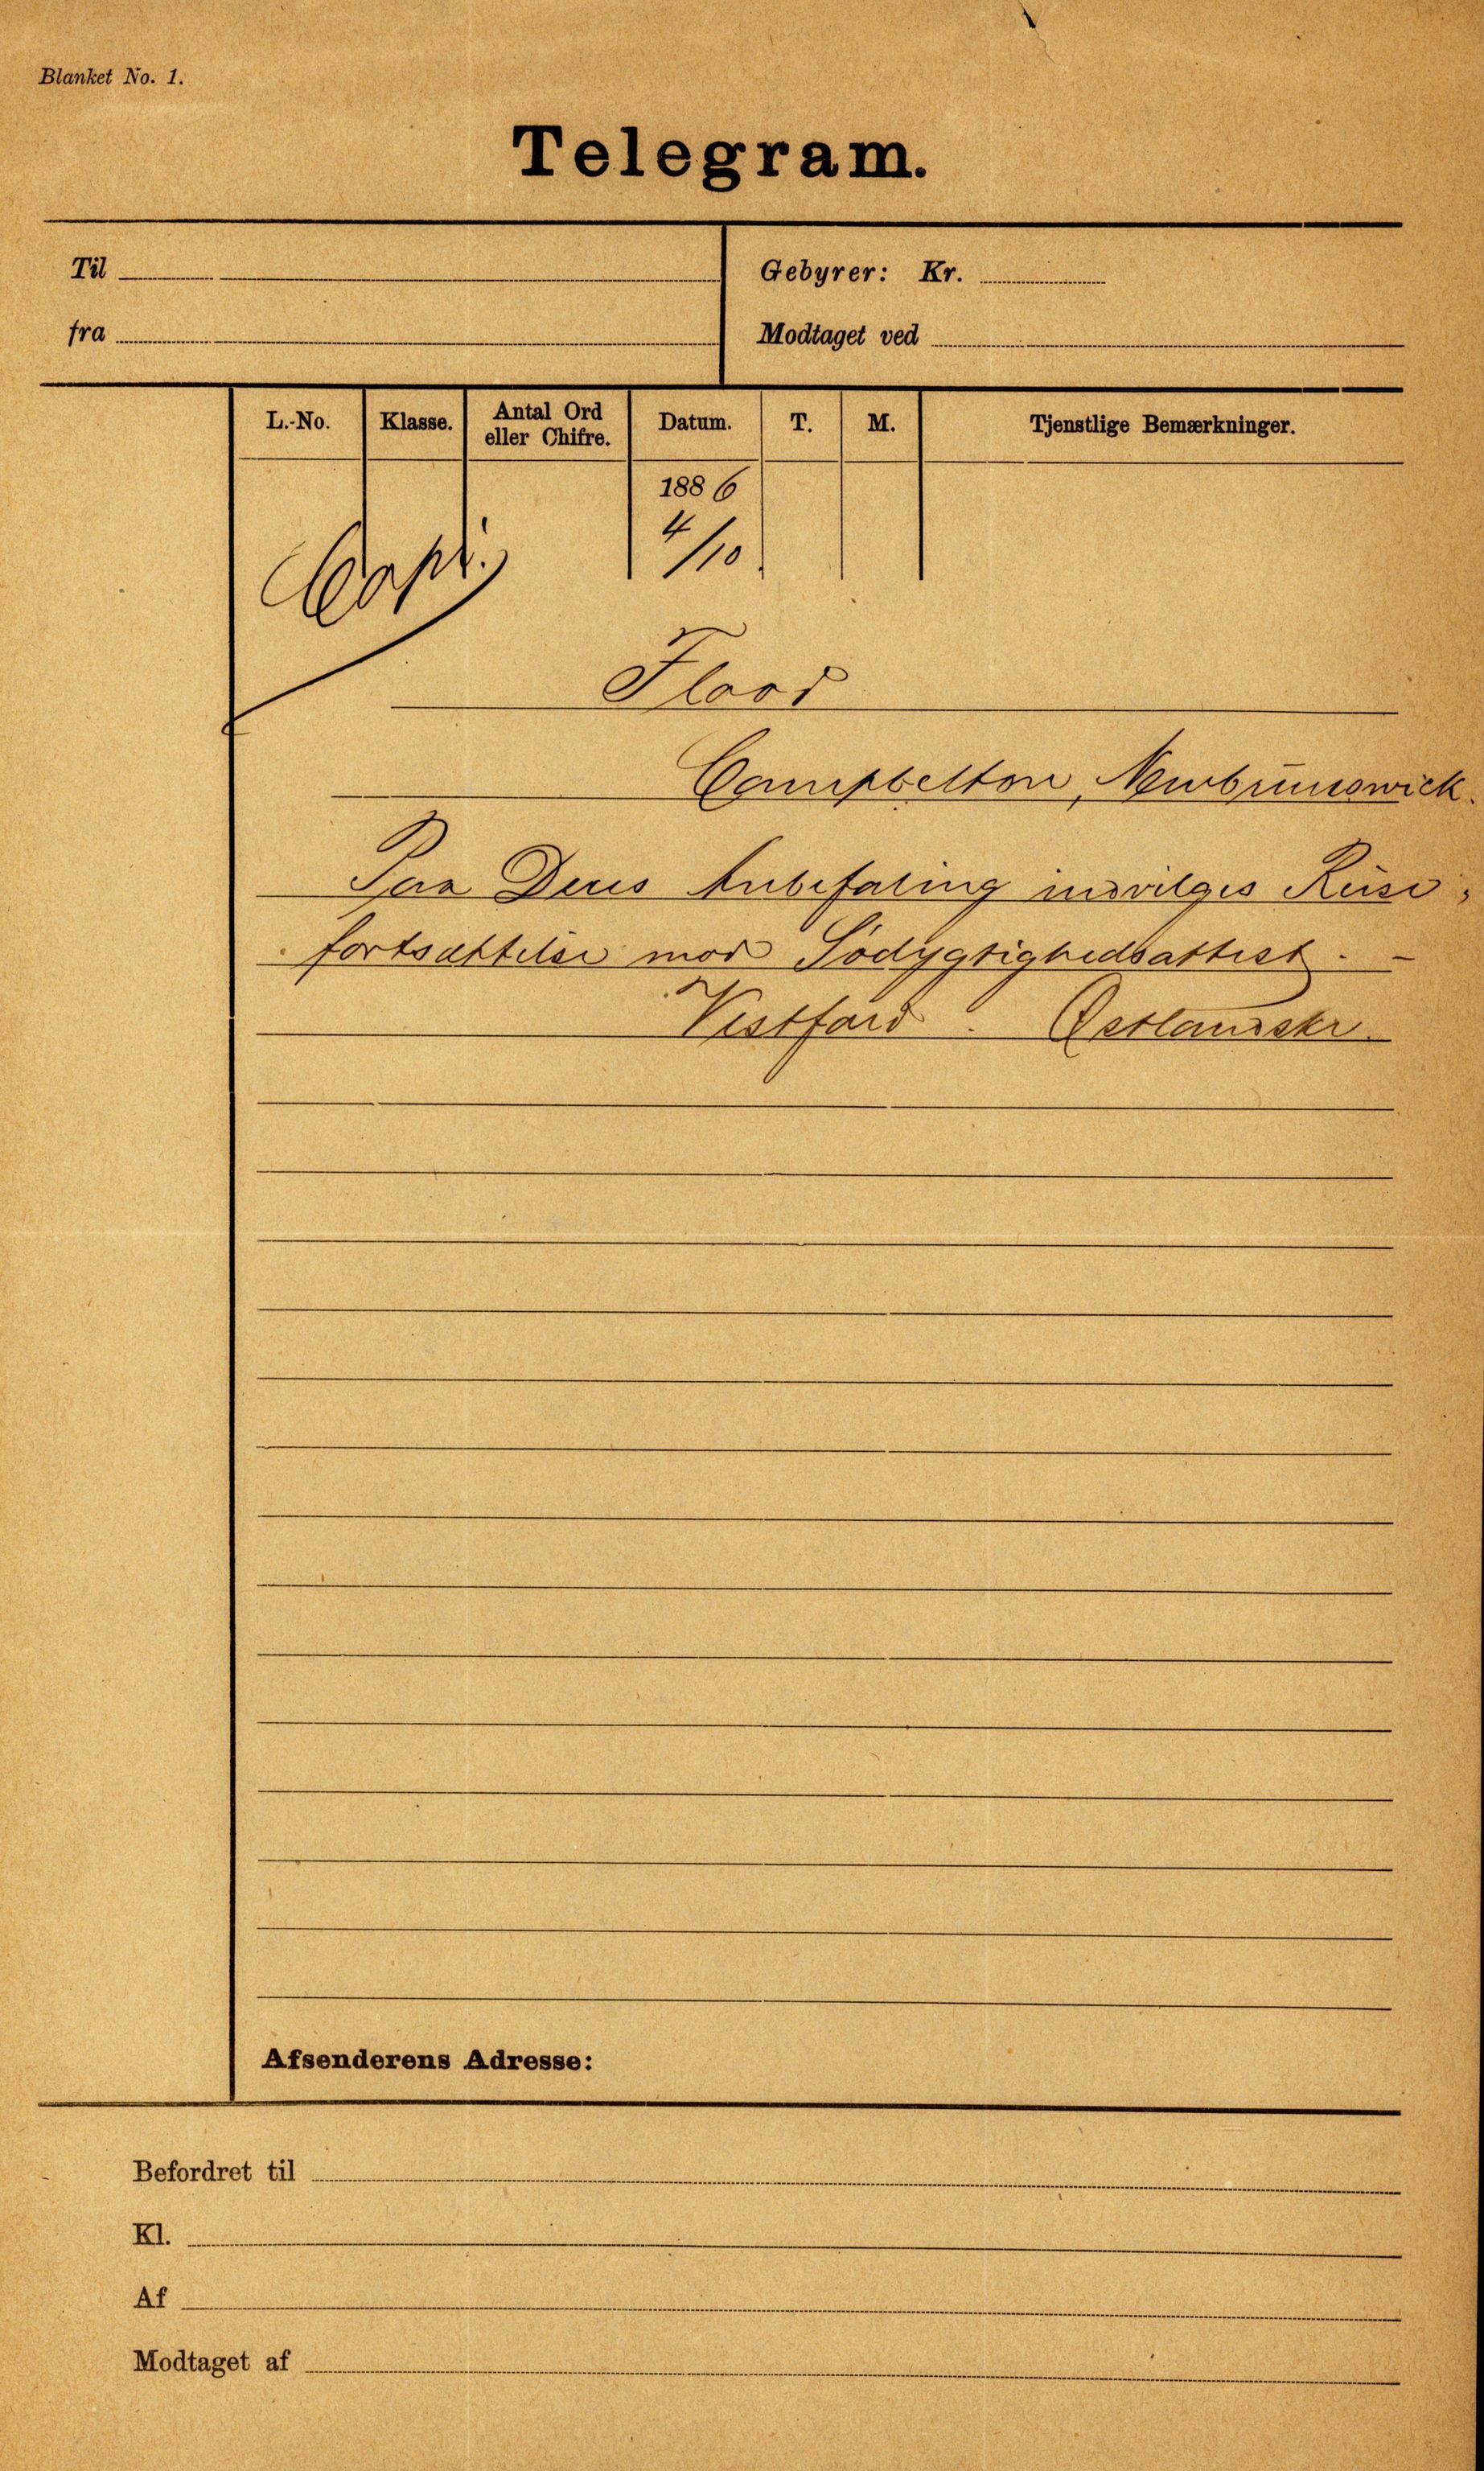 Blanket No. 1.
Telegram.
Til
Gebyrer: Kr.
fra
Modtaget ved
L.-No. Klasse. Antal Ord eller Chifre. Datum. T. M. Tjenstlige Bemærkninger.
1886
4/10.
Copi.
Flood
Campbelton, Newbrunswick.
Paa Deres Anbefaling indvilges Reise,
fortsættelse mod Södygtighedsattest. -
Vestfold. Østlandske.
Afsenderens Adresse:
Befordret til
Kl.
Af
Modtaget af